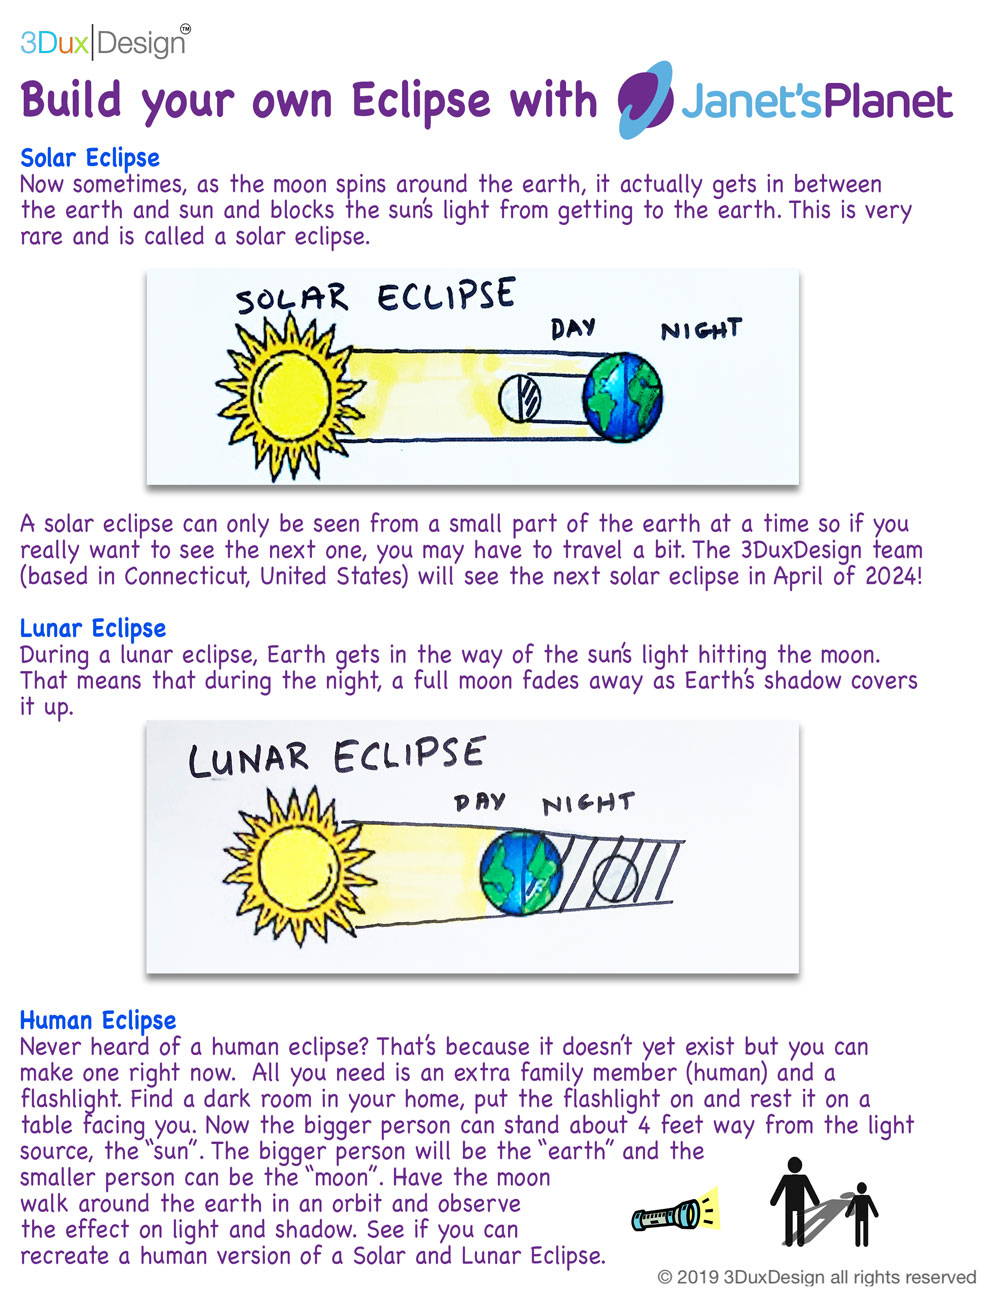 3Dux|Design™
Build your own Eclipse with Janet'sPlanet
Solar Eclipse
Now sometimes, as the moon spins around the earth, it actually gets in between
the earth and sun and blocks the sun's light from getting to the earth. This is very
rare and is called a solar eclipse.
SOLAR ECLIPSE
DAY NIGHT
A solar eclipse can only be seen from a small part of the earth at a time so if you
really want to see the next one, you may have to travel a bit. The 3DuxDesign team
(based in Connecticut, United States) will see the next solar eclipse in April of 2024!
Lunar Eclipse
During a lunar eclipse, Earth gets in the way of the sun's light hitting the moon.
That means that during the night, a full moon fades away as Earth's shadow covers
it up.
LUNAR ECLIPSE
DAY NIGHT
Human Eclipse
Never heard of a human eclipse? That's because it doesn't yet exist but you can
make one right now. All you need is an extra family member (human) and a
flashlight. Find a dark room in your home, put the flashlight on and rest it on a
table facing you. Now the bigger person can stand about 4 feet way from the light
source, the "sun". The bigger person will be the "earth" and the
smaller person can be the "moon". Have the moon
walk around the earth in an orbit and observe
the effect on light and shadow. See if you can
recreate a human version of a Solar and Lunar Eclipse.
© 2019 3DuxDesign all rights reserved